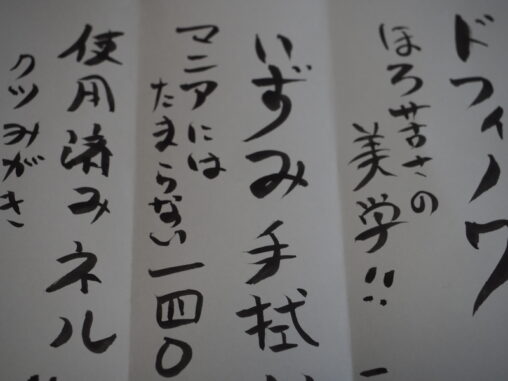 ドフィノワ
ほろ苦さの
美学!!
いずみ手拭
マニアには
たまらない一四〇
使用済みネル
クツみがき